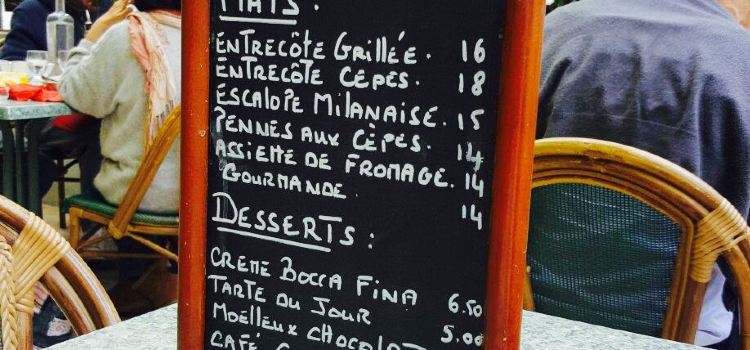 PLATS :
ENTRECÔTE GRILLÉE. 16
ENTRECÔTE CEPES. 18
ESCALOPE MILANAISE. 15
PENNES AUX CÈPES. 14
ASSIETTE DE FROMAGE. 14
GOURMANDE. 14
DESSERTS :
CREME BOCCA FINA 6.50
TARTE DU JOUR 5.00
MOËLLEUX CHOCOLAT
CAFÉ